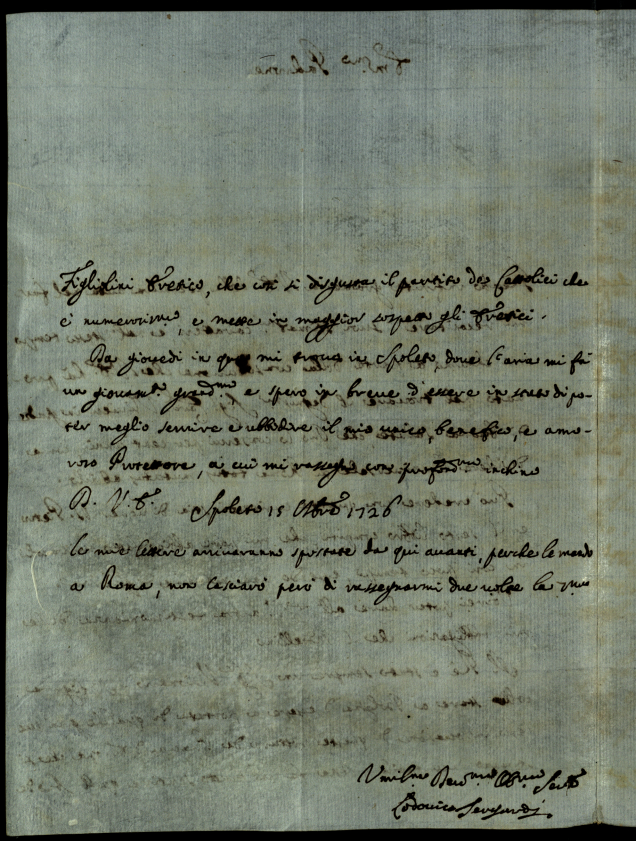 Figliolini Eretico, che così si disgusta il partito de Cattolici che
è numerosissimo, e mette in maggior sospetto gli Eretici.
Da giovedì in qua mi trovo in Spoleto, dove l'aria mi fà
un giovam.to grand.mo e spero in breve d'essere in stato di po-
ter meglio servire e ubbidire il mio unico, benefico, e amo-
roso Protettore, a cui mi rassegno con profond.mo inchino
D. V. E. Spoleto 15 Ottbre 1726
le mie lettere arrivaranno spostate da qui avanti, perche le mando
a Roma, non lasciarò però di rassegnarmi due volte la
Umil.mo Dev.mo Obb.mo Serv.
Lodovico Sergardi